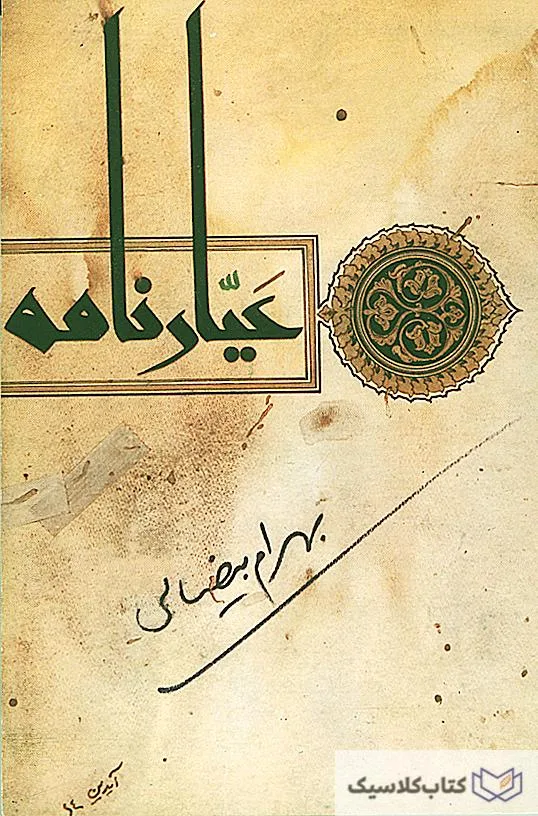 عَیّارنامه
بهرام بیضائی
آیدین ۶۴
کتاب کلاسیک